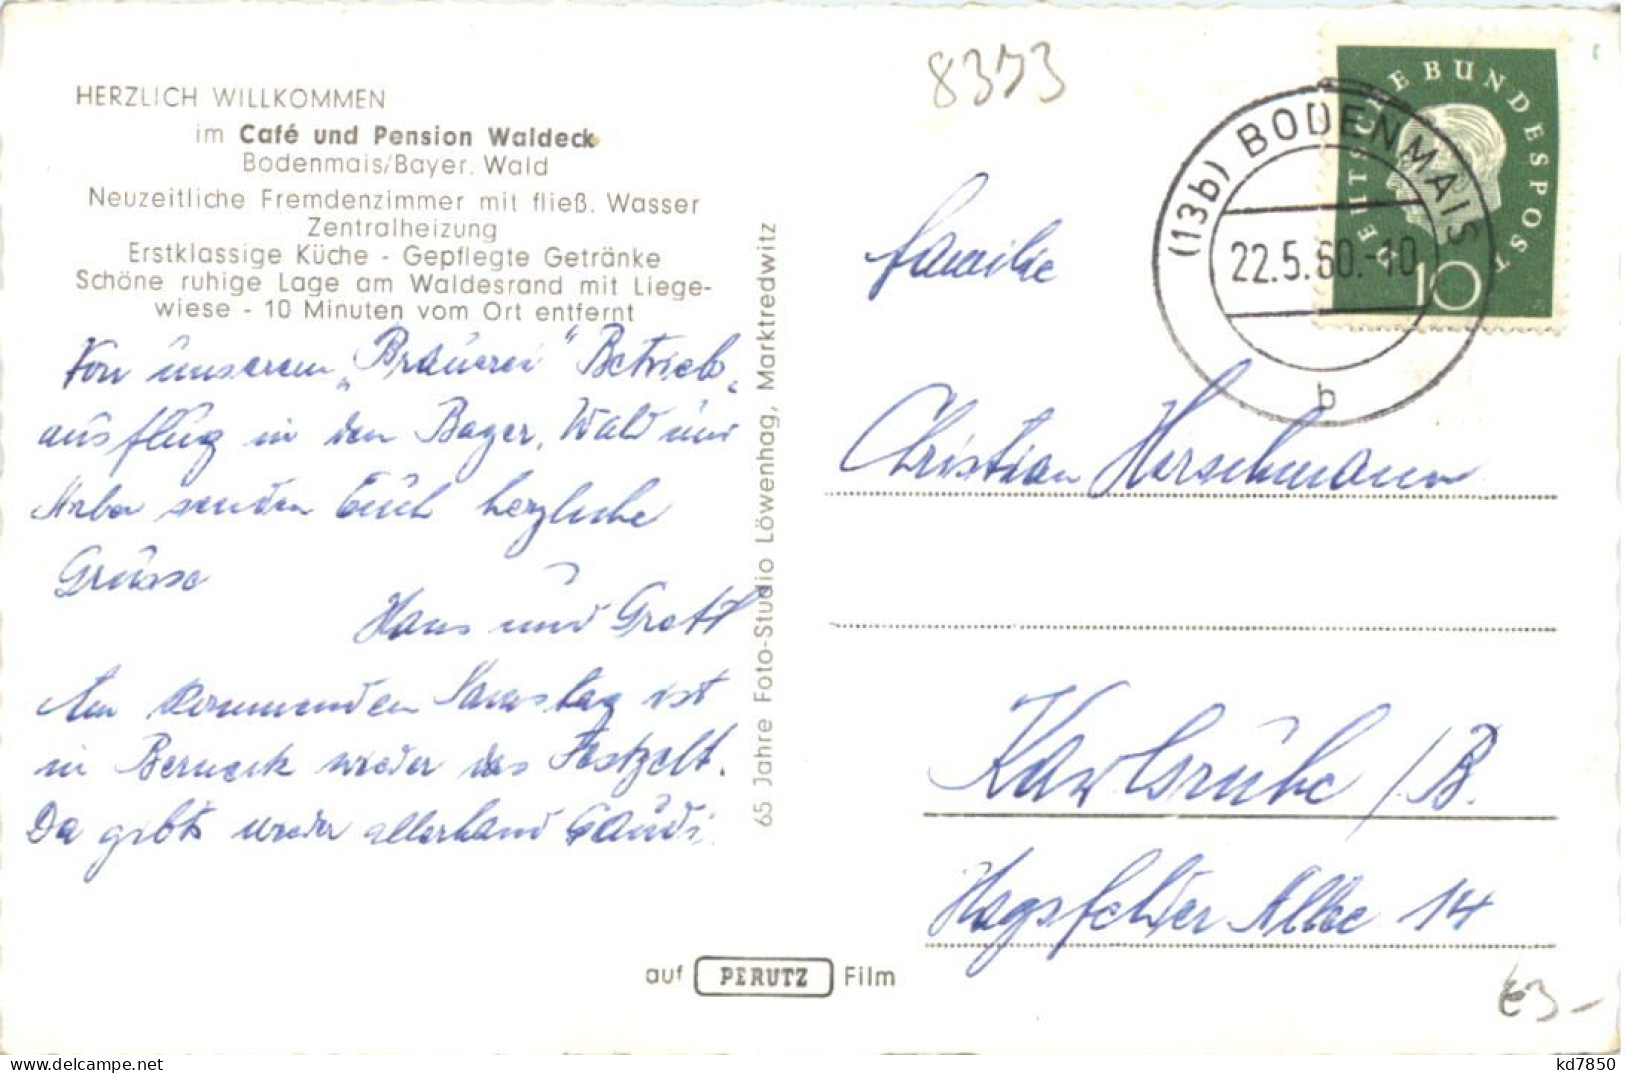 8373
HERZLICH WILLKOMMEN
im Café und Pension Waldeck
Bodenmais/Bayer. Wald
Neuzeitliche Fremdenzimmer mit fließ. Wasser
Zentralheizung
Erstklassige Küche - Gepflegte Getränke
Schöne ruhige Lage am Waldesrand mit Liege-
wiese - 10 Minuten vom Ort entfernt
Von unserem „Brauerei" Betriebs-
ausflug in den Bayer. Wald und
Arber senden Euch herzliche
Grüsse
Hans und Gretl
Am kommenden Samstag ist
in Berneck wieder das Festzelt.
Da gibts wieder allerhand Gaudi.
65 Jahre Foto-Studio Löwenhag, Marktredwitz
auf PERUTZ Film
DEUTSCHE BUNDESPOST
10
(13b) BODENMAIS
22.5.60.-10
b
Familie
Christian Herschmann
Karlsruhe /B.
Hagsfelder Allee 14
€3-
www.delcampe.net
kd7850